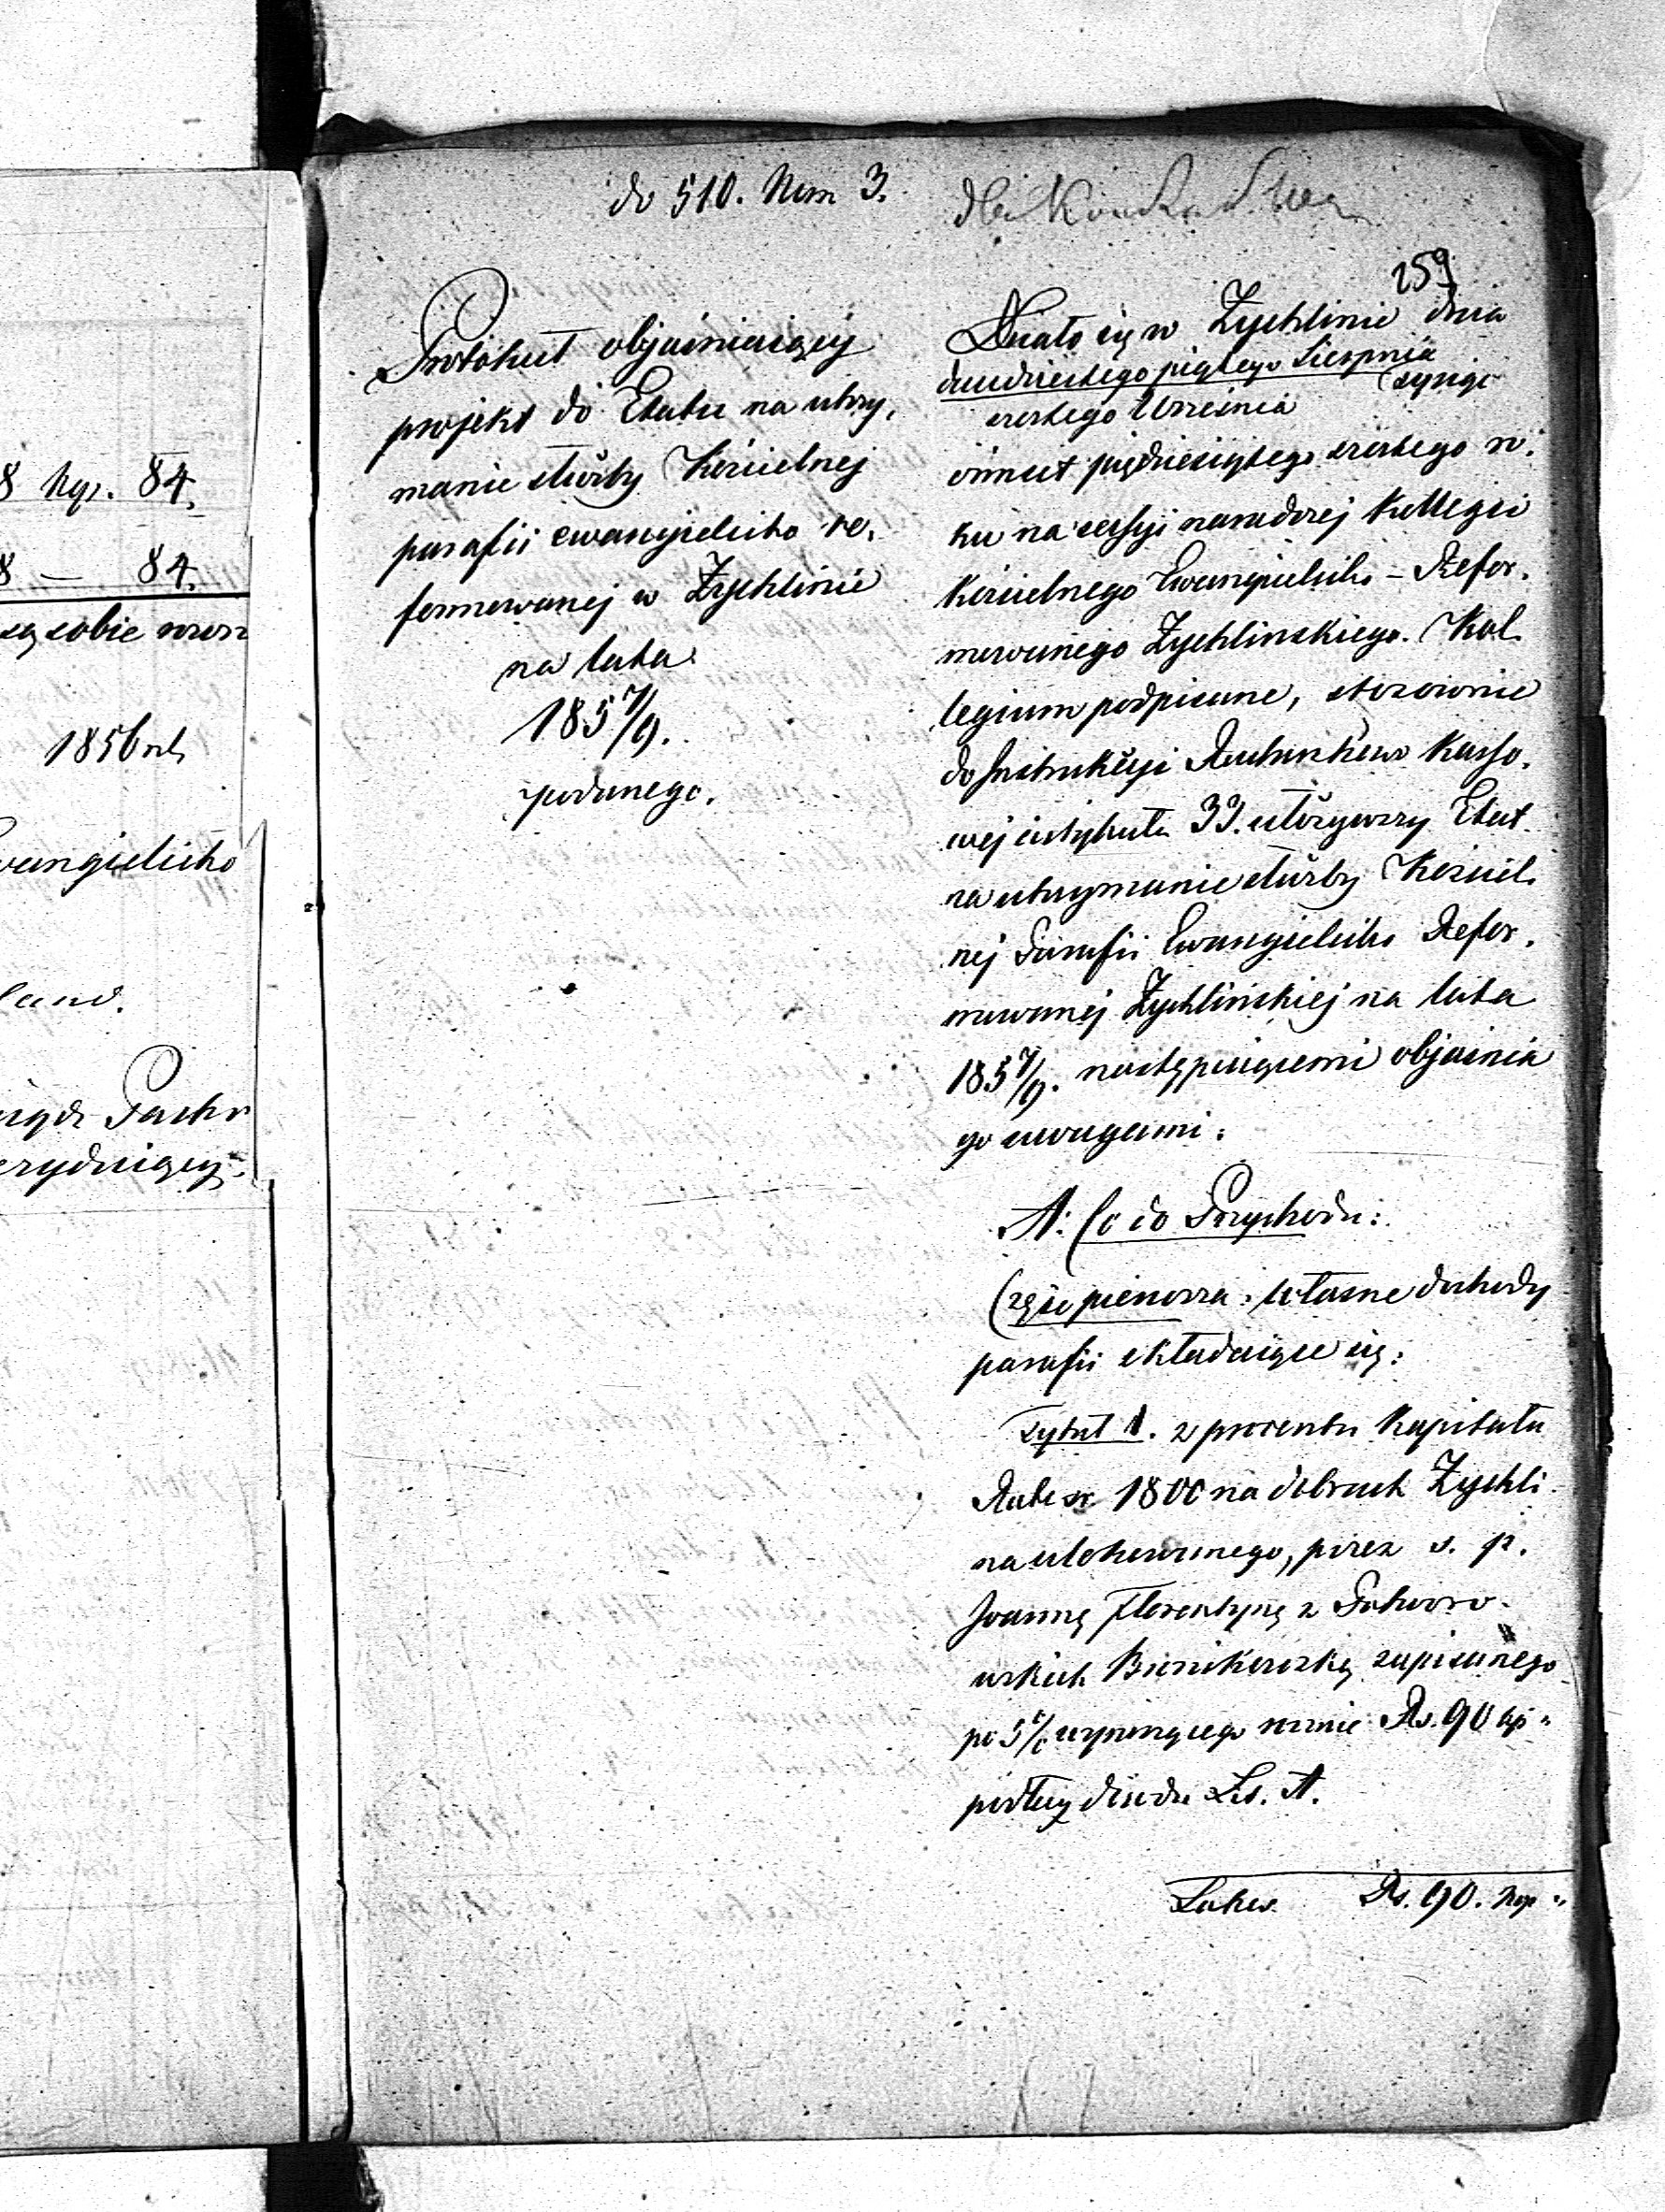 8 kp. 84.
8 — 84.
są sobie
1856
Ewangielicko
do 510. Num 3.
259
Protokuł objaśniaiący
projekt do Etatu na utrzy,
manie służby Kościelnej
parafii ewangielicko re,
formowanej w Żychlinie
na lata
185 7/9.
podanego.
Działo się w Żychlinie dnia
dwudziestego piątego Sierpnia
szóstego Września tysiąc
ośmset pięćdziesiątego szóstego ro,
ku na sessyi naradczej Kollegii
Kościelnego Ewangielicko – Refor,
mowanego Żychlinskiego. Kol,
legium podpisane, stosownie
do Instrukcyi Rachunkowo Kasso,
wej artykułu 33. ułożywszy Etat
na utrzymanie służby Kościel,
nej Parafii Ewangielicko Refor,
mowanej Żychlińskiej na lata
185 7/9. następuiącemi objaśnia
go uwagami:
A: Co do Przychodu:
Część pierwsza: własne dochody
parafii składaiące się:
Tytuł 1. z procentu Kapitału
Rubsr. 1800 na dobrach Żychli,
na ulokowanego, przez ś. p.
Joannę Florentynę z Potworo,
wskich Bronikowską zapisanego
po 5% wynoszącego rocznie Rs. 90 kp "
podług dowodu Lit. A.
Latus. Rs. 90. kop "